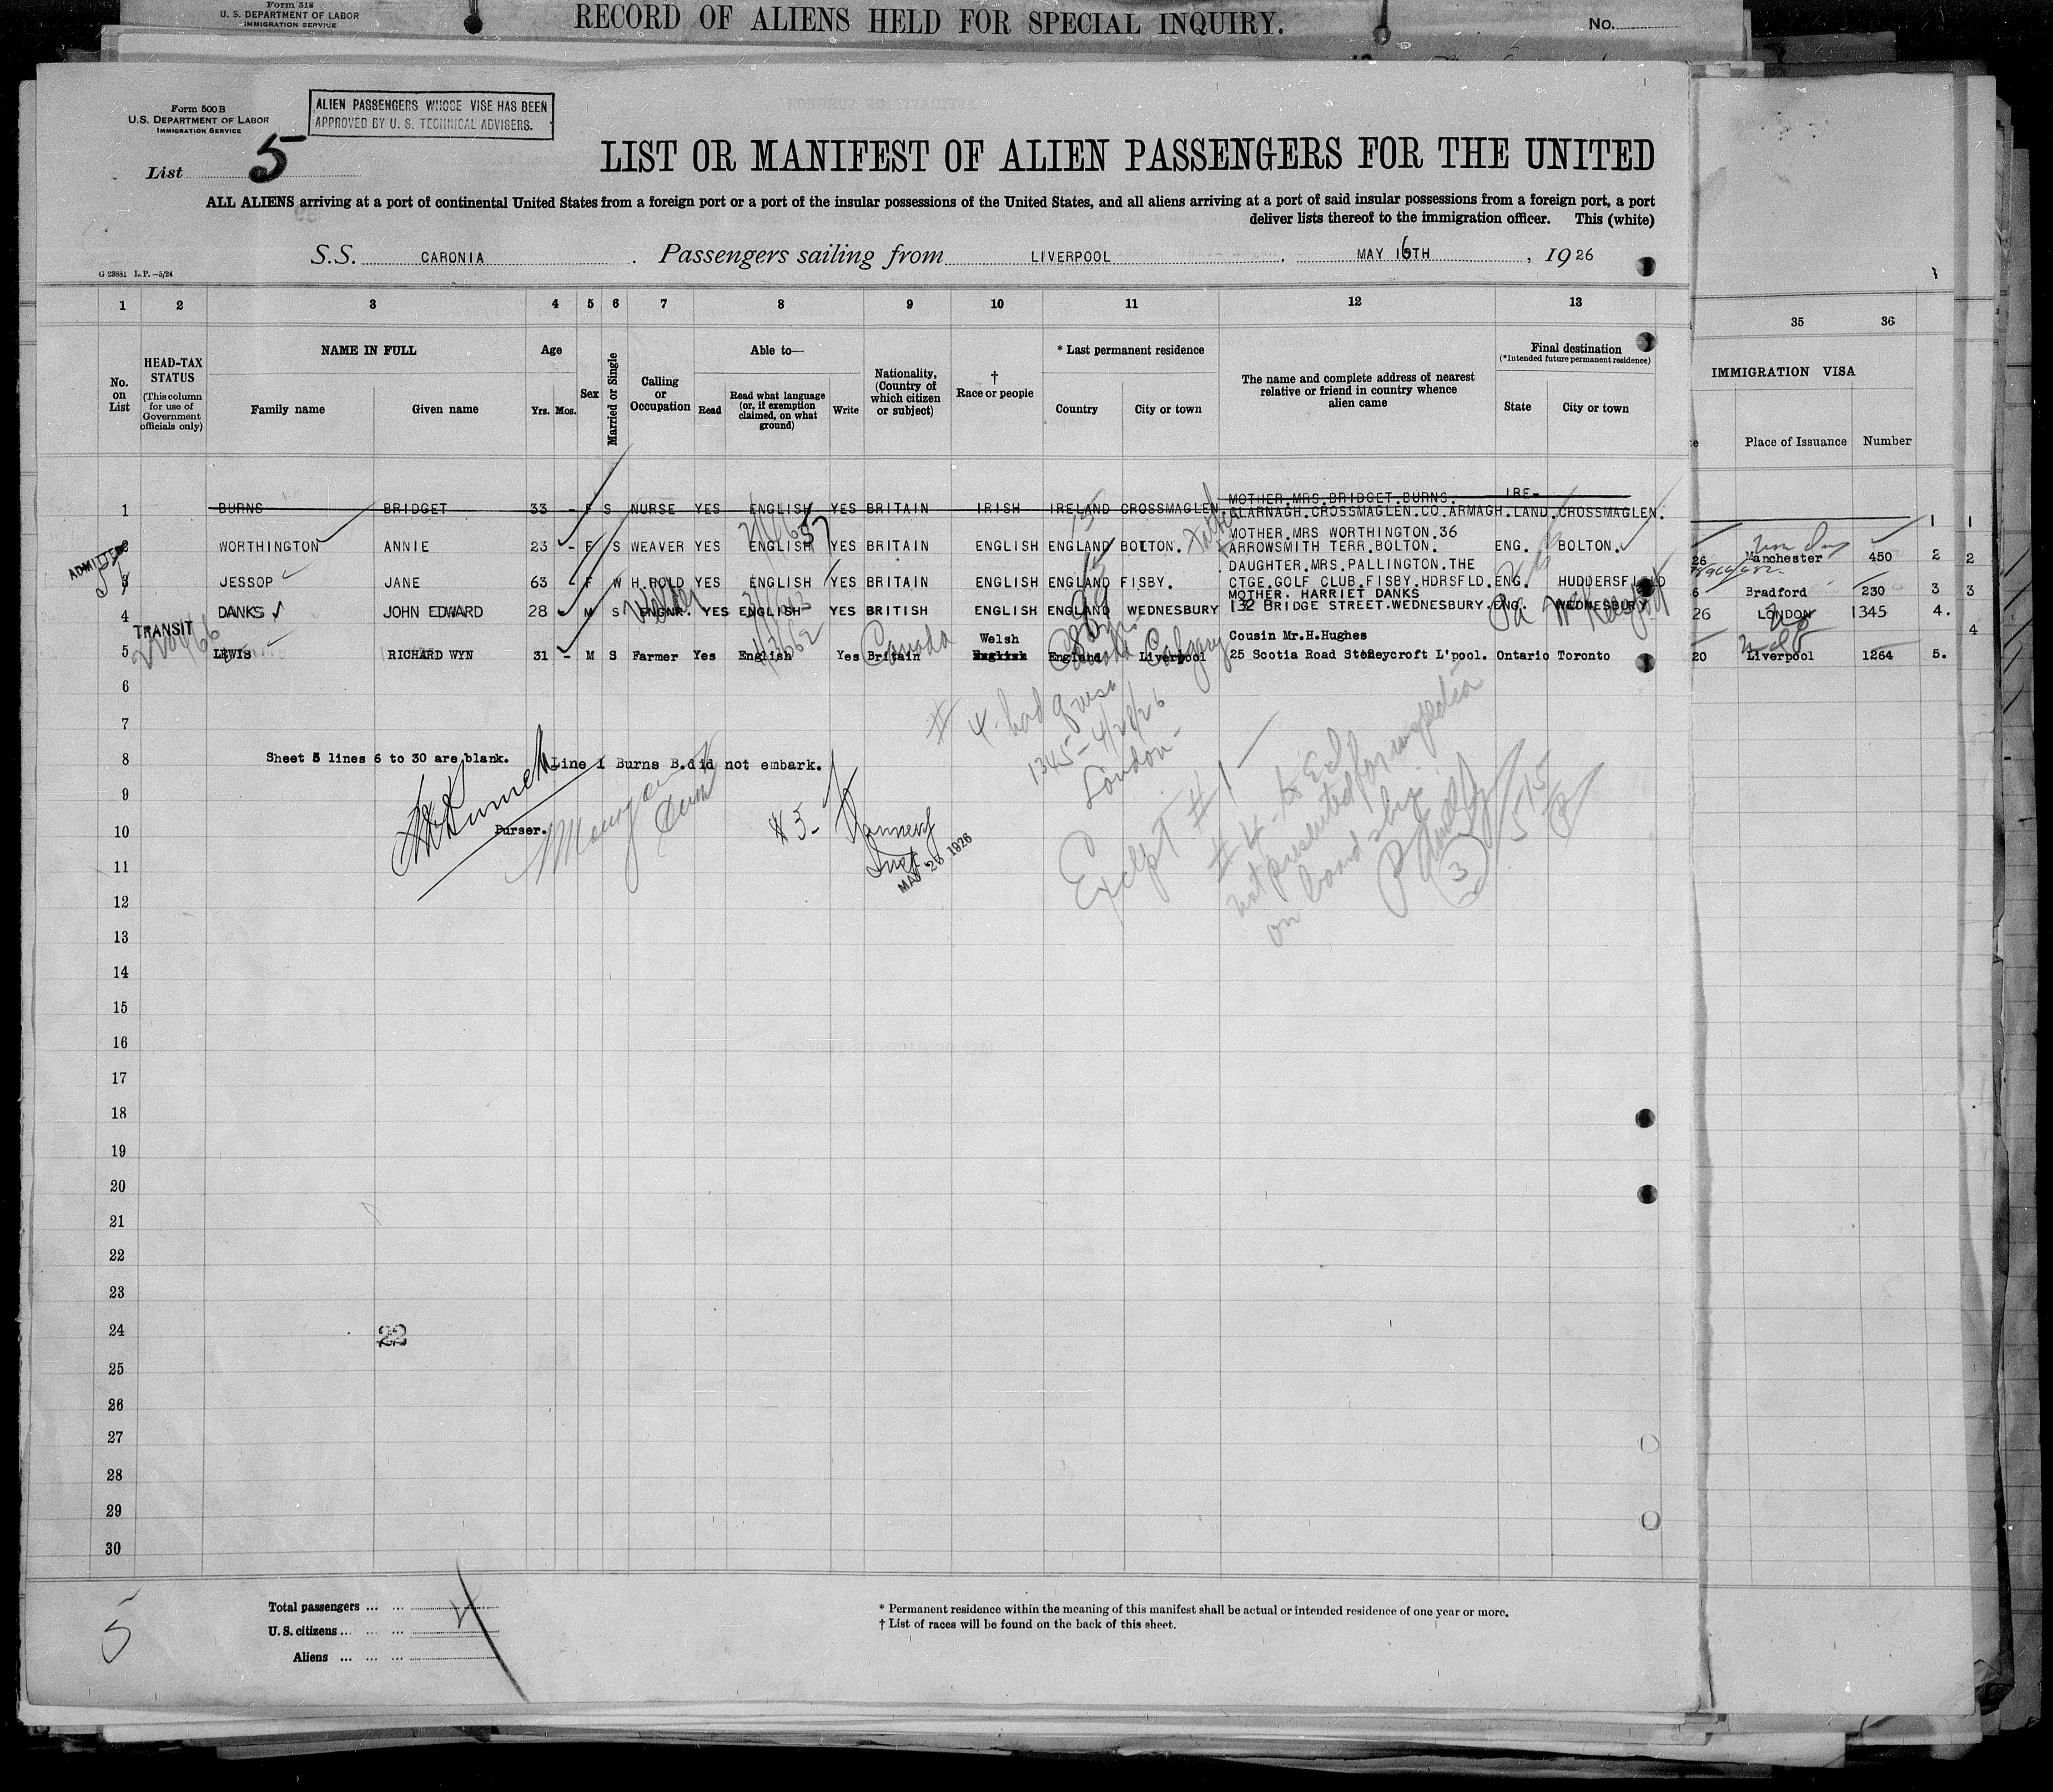 Form 518
U. S. DEPARTMENT OF LABOR
IMMIGRATION SERVICE
RECORD OF ALIENS HELD FOR SPECIAL INQUIRY.
No.
Form 500 B
U. S. DEPARTMENT OF LABOR
IMMIGRATION SERVICE
ALIEN PASSENGERS WHOSE VISE HAS BEEN
APPROVED BY U. S. TECHNICAL ADVISERS.
List 5
LIST OR MANIFEST OF ALIEN PASSENGERS FOR THE UNITED
ALL ALIENS arriving at a port of continental United States from a foreign port or a port of the insular possessions of the United States, and all aliens arriving at a port of said insular possessions from a foreign port, a port
deliver lists thereof to the immigration officer. This (white)
S.S. CARONIA . Passengers sailing from LIVERPOOL , MAY 16TH , 1926
G 23881 L.P.—5/24
1 2 3 4 5 6 7 8 9 10 11 12 13 35 36
No. on List
HEAD-TAX STATUS (This column for use of Government officials only)
NAME IN FULL
Family name Given name
Age
Yrs. Mos.
Sex
Married or Single
Calling or Occupation
Able to—
Read
Read what language (or, if exemption claimed, on what ground)
Write
Nationality, (Country of which citizen or subject)
† Race or people
* Last permanent residence
Country City or town
The name and complete address of nearest relative or friend in country whence alien came
Final destination
(*Intended future permanent residence)
State City or town
IMMIGRATION VISA
Place of Issuance Number
MOTHER.MRS.BRIDGET.BURNS. IRE-
1 BURNS BRIDGET 33 - F S NURSE YES ENGLISH YES BRITAIN IRISH IRELAND CROSSMAGLEN. GLARNAGH.CROSSMAGLEN.CO.ARMAGH.LAND.CROSSMAGLEN. 1 1
MOTHER.MRS WORTHINGTON.36
ADMITTED 2 WORTHINGTON ANNIE 23 - F S WEAVER YES ENGLISH YES BRITAIN ENGLISH ENGLAND BOLTON. ARROWSMITH TERR.BOLTON. ENG. BOLTON. 26 Manchester 450 2 2
DAUGHTER.MRS.PALLINGTON.THE
3 JESSOP JANE 63 - F W H.HOLD YES ENGLISH YES BRITAIN ENGLISH ENGLAND FISBY. CTGE.GOLF CLUB.FISBY.HDRSFLD.ENG. HUDDERSFIELD 6 Bradford 230 3 3
MOTHER. HARRIET DANKS
4 DANKS JOHN EDWARD 28 M S ENGNR. Welder YES ENGLISH YES BRITISH ENGLISH ENGLAND WEDNESBURY 132 BRIDGE STREET.WEDNESBURY.ENG. WEDNESBURY Pa 26 LONDON 1345 4. 4
TRANSIT
Welsh Cousin Mr.H.Hughes
5 LEWIS RICHARD WYN 31 - M S Farmer Yes English Yes Britain Canada English England Liverpool Calgary 25 Scotia Road Stoneycroft L'pool. Ontario Toronto 20 Liverpool 1264 5.
6
7
# 4. had q visa
1345 - 4/28/26
London -
8 Sheet 5 lines 6 to 30 are blank. Line 1 Burns B.did not embark.
9
10 Purser.
#3-
Insp.
MAY 25 1926
Except #1
#4 - to
not presented for inspection
on board ship
3
5/15
11
12
13
14
15
16
17
18
19
20
21
22
23
24 22
25
26
27
28
29
30
5
Total passengers ... ...
U. S. citizens ... ... ...
Aliens ... ... ...
* Permanent residence within the meaning of this manifest shall be actual or intended residence of one year or more.
† List of races will be found on the back of this sheet.